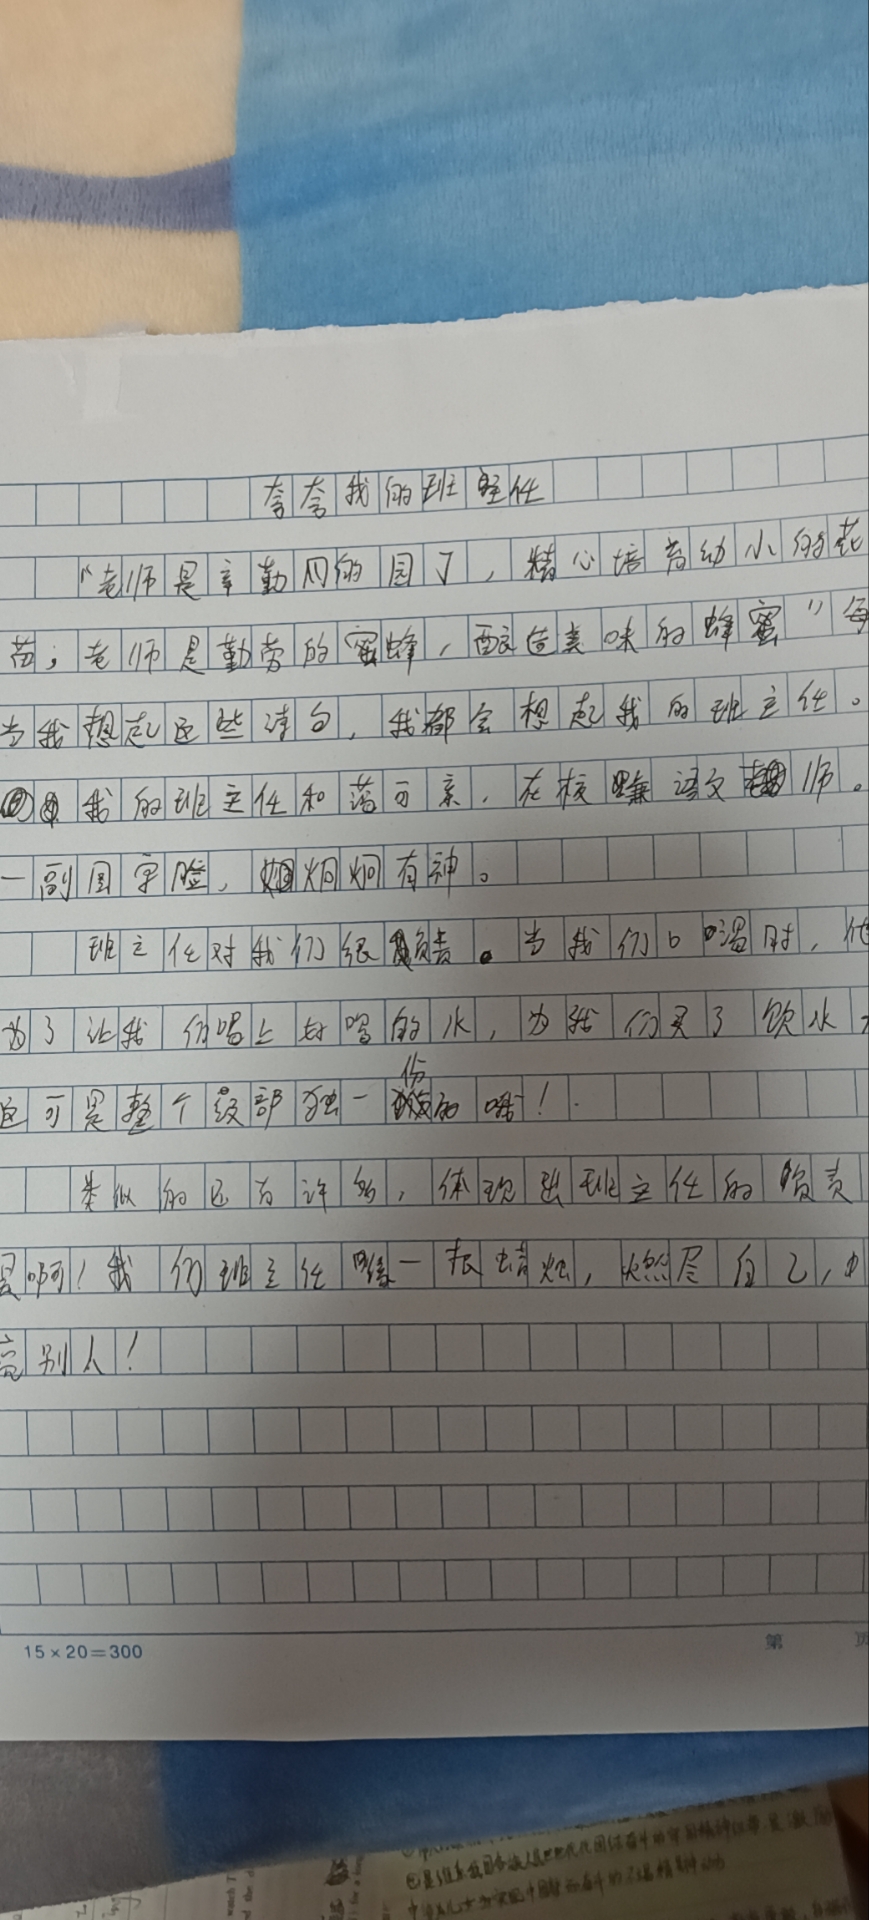 夸夸我的班主任
"老师是辛勤的园丁，精心培育幼小的花
苗；老师是勤劳的蜜蜂，酿造美味的蜂蜜"每
当我想起这些诗句，我都会想起我的班主任。
我的班主任和蔼可亲，在校 语文 师。
一副国字脸，炯炯有神。
班主任对我们很负责。当我们口渴时，他
为了让我们喝上好喝的水，为我们买了饮水
这可是整个级部独一份的哦！
类似的还有许多，体现出班主任的负责
是啊！我们班主任像一根蜡烛，燃尽自己，
亮别人！
15×20=300
第 页